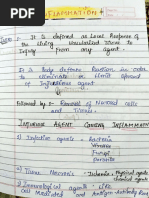 INFLAMMATION
Defn :- It is defined as Local Response of
the living Vascularized Tissue to
Injury from any agent.
It is body defense Reaction in order
eliminate or limit spread
of injurious agent.
Followed by :- Removal of Necrosed cells
Tissues.
INJURIOUS AGENT CAUSING INFLAMMATION
1) Infective agents = Bacteria
Viruses
Fungi
Parasite
2) Tissue Necrosis = Ischemia, Physical agents
chemical agents
3) Immunological agents = Like
Cell Mediated and Antigen Antibody